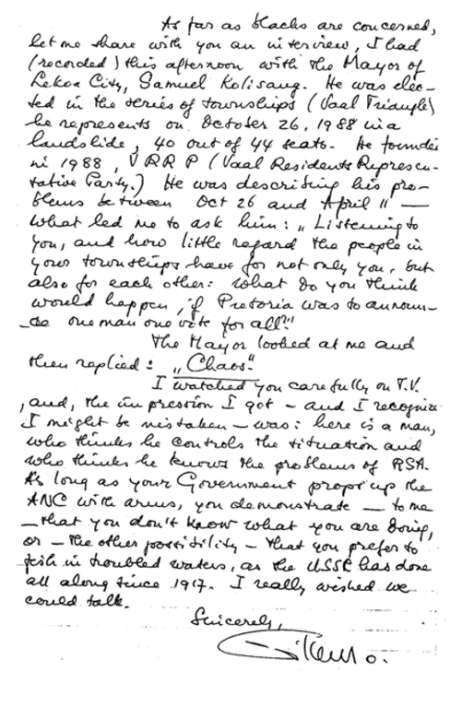 As far as blacks are concerned,
let me share with you an interview, I had
(recorded) this afternoon with the Mayor of
Lekoa City, Samuel Kolisang. He was elec-
ted in the series of townships (Vaal Triangle)
he represents on October 26, 1988 in a
landslide, 40 out of 44 seats. He founded
in 1988, VRRP (Vaal Residents Represen-
tative Party.) He was describing his pro-
blems between Oct 26 and April" —
what led me to ask him: "Listening to
you, and how little regard the people in
your townships have for not only you, but
also for each other: what do you think
would happen, if Pretoria was to announ-
ce one man one vote for all?"
The Mayor looked at me and
then replied: "Chaos".
I watched you carefully on T.V.
, and, the impression I got – and I recognize
I might be mistaken – was: here is a man,
who thinks he controls the situation and
who thinks he knows the problems of RSA.
As long as your Government props up the
ANC with arms, you demonstrate – to me
– that you don't know what you are doing,
or – the other possibility – that you prefer to
fish in troubled waters, as the USSR has done
all along since 1917. I really wished we
could talk.
Sincerely,